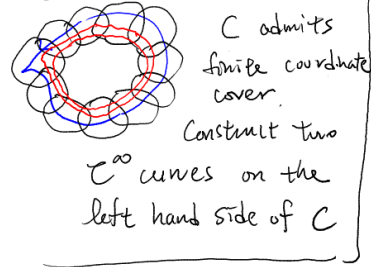 C admits
finite coordinate
cover.
Construct two
C^∞ curves on the
left hand side of C